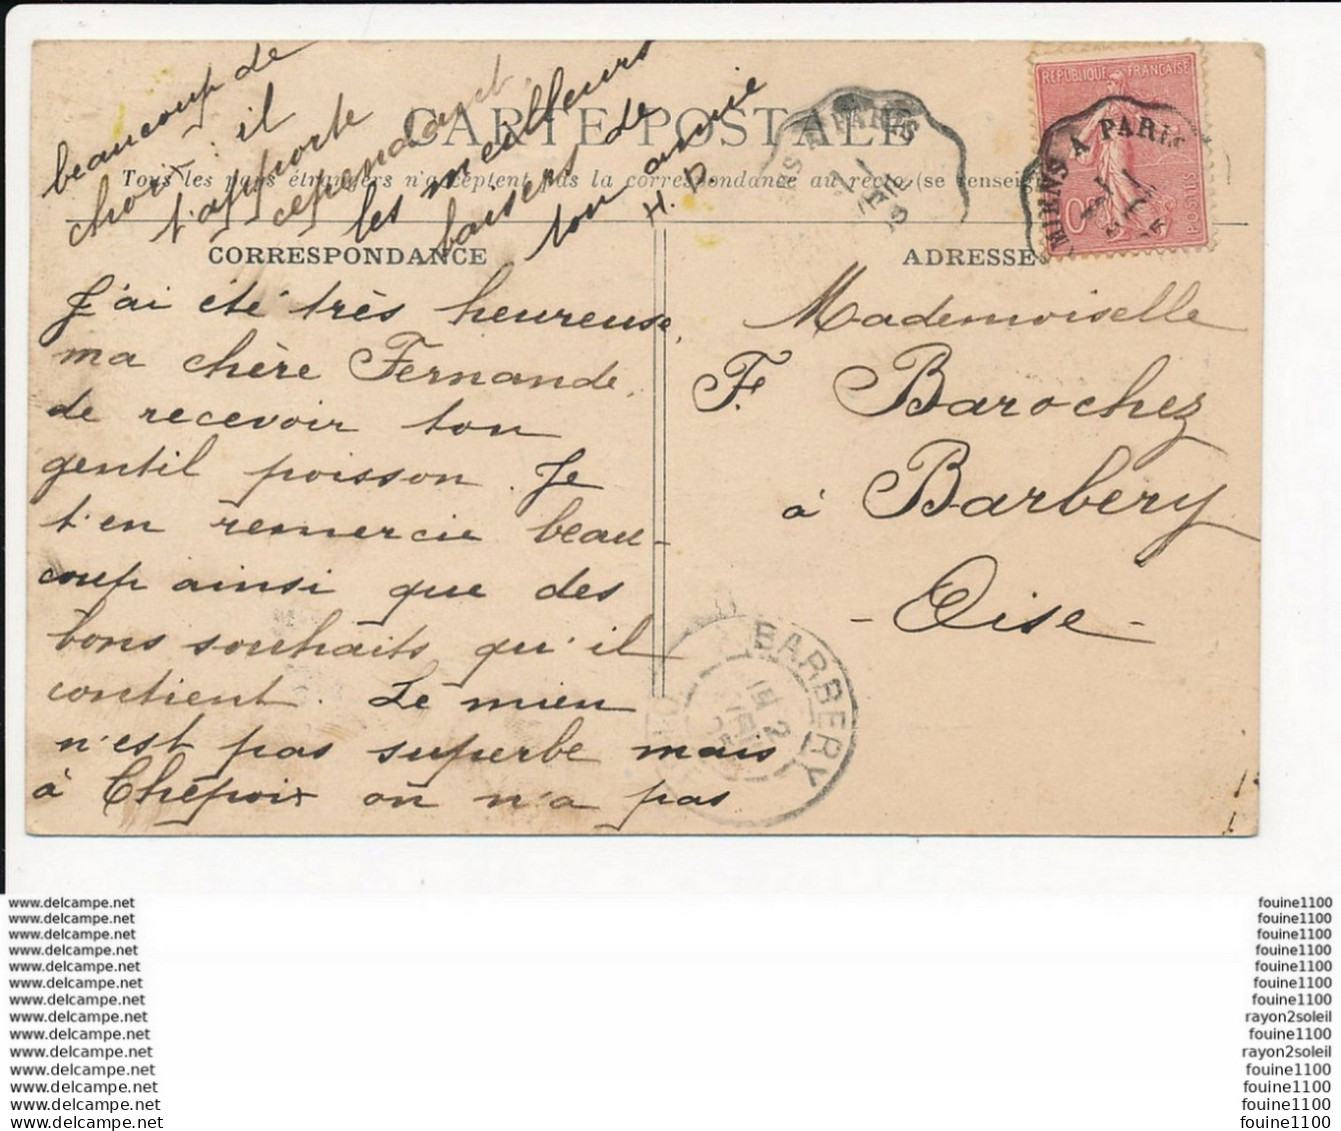 CARTE POSTALE
Tous les pays étrangers n'acceptent pas la correspondance au recto (se renseig
CORRESPONDANCE
J'ai été très heureuse,
ma chère Fernande,
de recevoir ton
gentil poisson. Je
t'en remercie beau-
coup ainsi que des
bons souhaits qu'il
contient. Le mien
n'est pas superbe mais
à Chepoix on n'a pas
beaucoup de
choix ; il
t'apporte
cependant
les meilleurs
baisers de
ton amie
H. D.
ADRESSE
Mademoiselle
F. Barochez
à Barbery
- Oise -
RÉPUBLIQUE FRANÇAISE
POSTES
MIENS A PARIS
S A PARIS
BARBERY
www.delcampe.net
www.delcampe.net
www.delcampe.net
www.delcampe.net
www.delcampe.net
www.delcampe.net
www.delcampe.net
www.delcampe.net
www.delcampe.net
www.delcampe.net
www.delcampe.net
www.delcampe.net
www.delcampe.net
www.delcampe.net
fouine1100
fouine1100
fouine1100
fouine1100
fouine1100
fouine1100
fouine1100
rayon2soleil
fouine1100
rayon2soleil
fouine1100
fouine1100
fouine1100
fouine1100